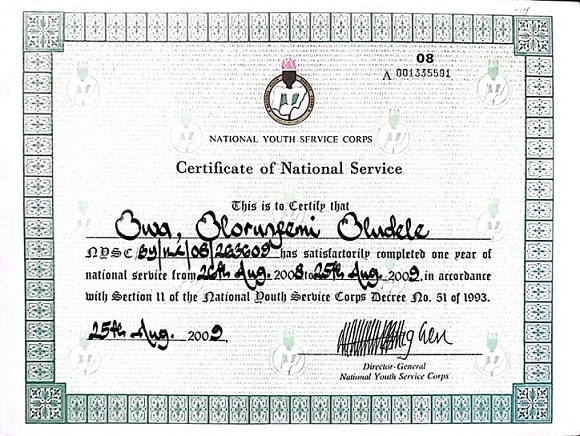 08
A 001335591
NATIONAL YOUTH SERVICE CORPS
Certificate of National Service
This is to Certify that
Owa, Olorunfemi Oludele
NYSC/BY/HC/08/263609 has satisfactorily completed one year of
national service from 26th Aug. 2008 to 25th Aug. 2009, in accordance
with Section 11 of the National Youth Service Corps Decree No. 51 of 1993.
25th Aug. 2009.
Director-General
National Youth Service Corps